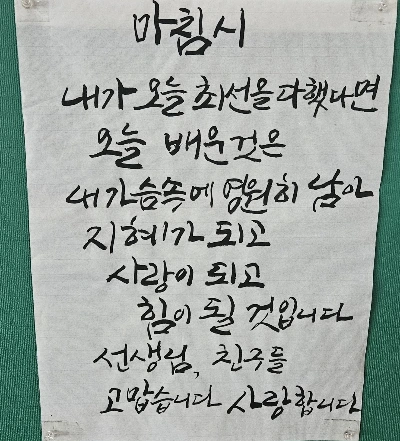 마침시
내가 오늘 최선을 다했다면
오늘 배운것은
내 가슴속에 영원히 남아
지혜가 되고
사랑이 되고
힘이 될 것입니다
선생님, 친구들
고맙습니다 사랑합니다